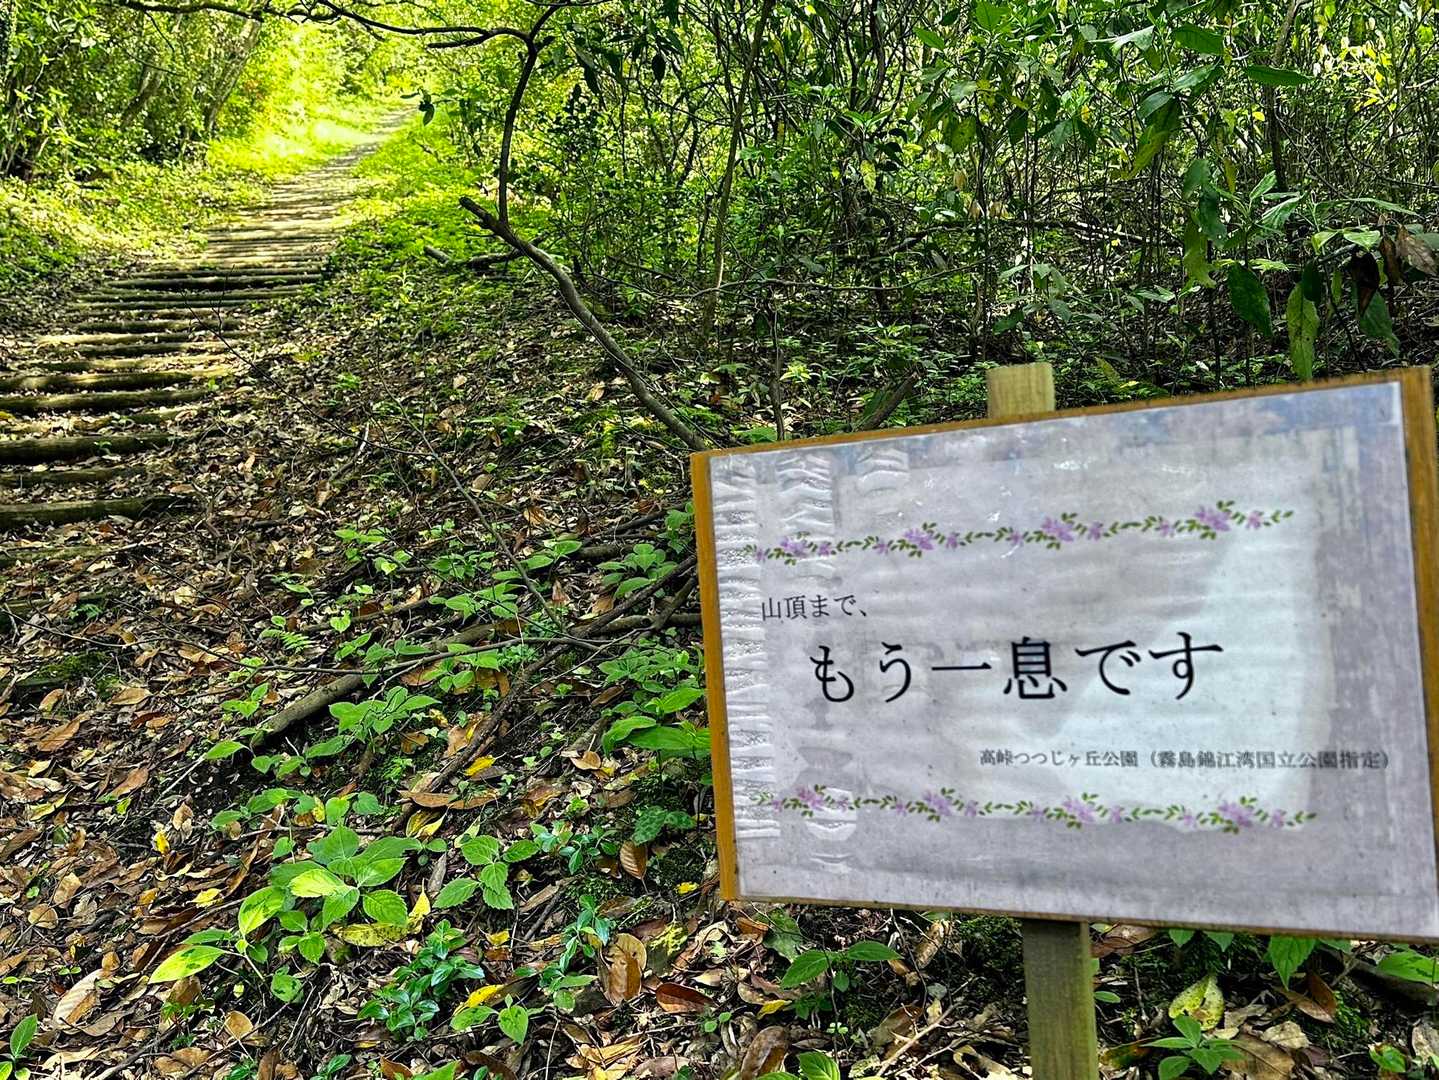 山頂まで、
もう一息です
高峠つつじヶ丘公園（霧島錦江湾国立公園指定）